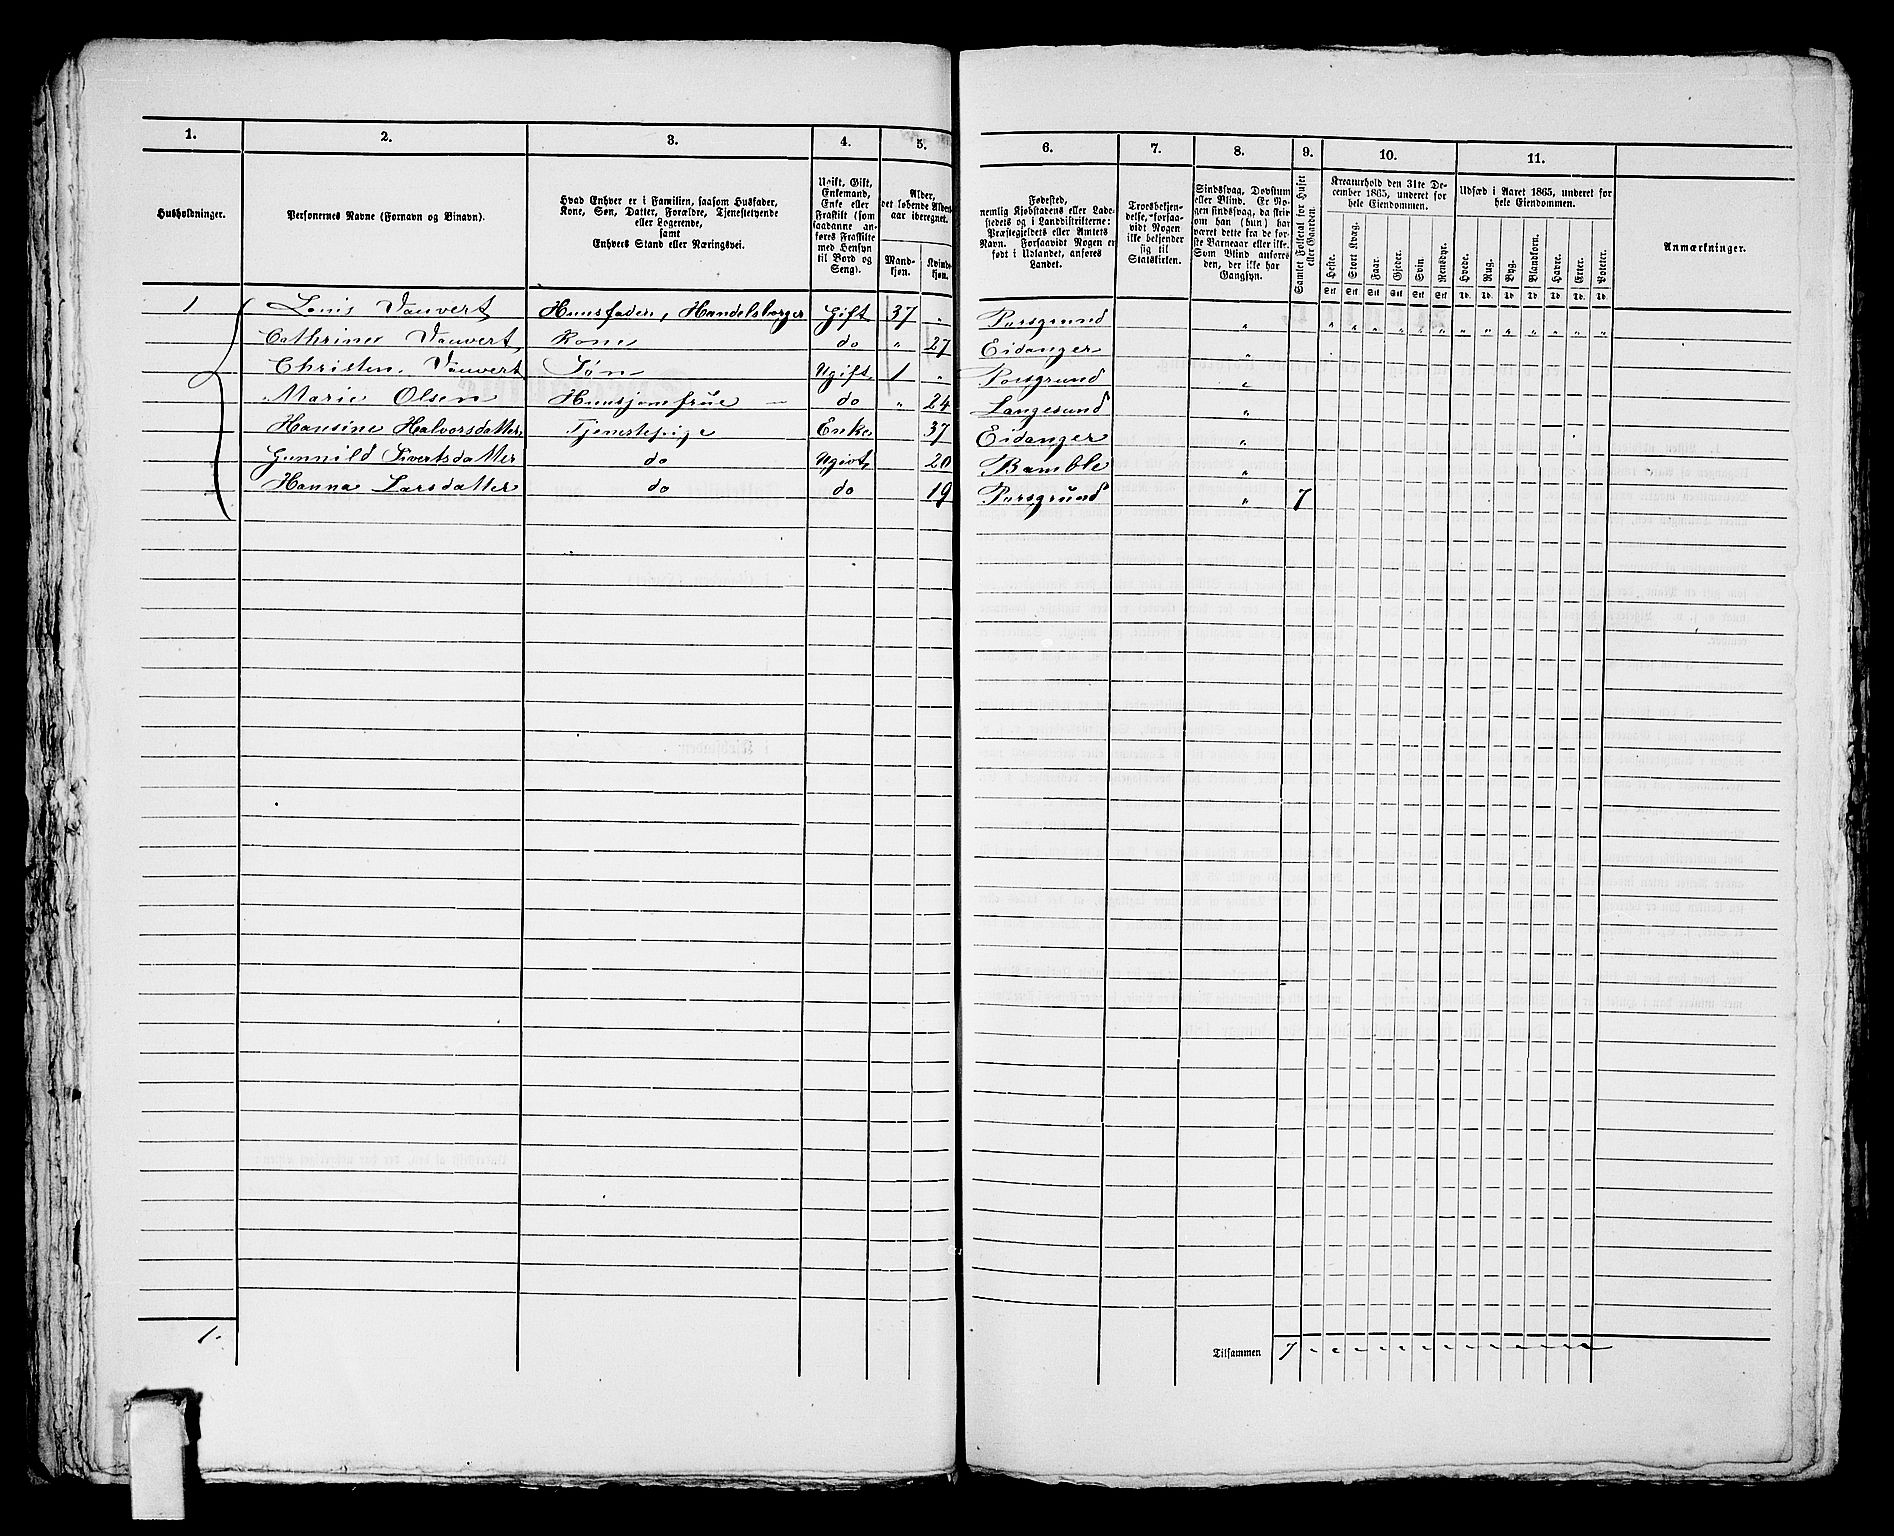 1. 2. 3. 4. 5. 6. 7. 8. 9. 10. 11.
Husholdninger.
Personernes Navne (Fornavn og Binavn).
Hvad Enhver er i Familien, saasom Husfader,
Kone, Søn, Datter, Forældre, Tjenestetyende
eller Logerende,
samt
Enhvers Stand eller Næringsvei.
Ugift, Gift,
Enkemand,
Enke eller
Fraskilt (som
saadanne an-
føres Fraskilte
med Hensyn
til Bord og
Seng).
Alder,
det løbende Alders-
aar iberegnet.
Mand-
kjøn.
Kvinde-
kjøn.
Fødested,
nemlig Kjøbstadens eller Lade-
stedets og i Landdistrikterne:
Præstegjeldets eller Amtets
Navn. Forsaavidt Nogen er
født i Udlandet, anføres
Landet.
Troesbekjen-
delse, forsaa-
vidt Nogen
ikke bekjender
sig til
Statskirken.
Sindssvag, Døvstum
eller Blind. Er No-
gen sindssvag, da skriv
om han (hun) har
været dette fra de før-
ste Barneaar eller ikke.
Som Blind anføres
den, der ikke har
Gangsyn.
Samlet Folketal for Huset
eller Gaarden.
Kreaturhold den 31te De-
cember 1865, underet for
hele Eiendommen.
Heste. Stort Kvæg. Faar. Gjeder. Svin. Rensdyr.
Stk Stk Stk Stk Stk Stk
Udsæd i Aaret 1865, underet for
hele Eiendommen.
Hvede. Rug. Byg. Blandkorn. Havre. Erter. Poteter.
Td. Td. Td. Td. Td. Td. Td.
Anmærkninger.
1 Louis Vauvert Huusfader, Handelsborger Gift 37 „ Porsgrund „ „ „ „ „ „ „ „ „ „ „ „ „ „
Cathrine Vauvert Kone do „ 27 Eidanger „
Christen Vauvert Søn Ugift 1 „ Porsgrund „
Marie Olsen Huusjomfrue do „ 24 Langesund „
Hansine Halvorsdatter Tjenestepige Enke 37 Eidanger „
Gunnild Sivertsdatter do Ugivt 20 Bamble „
Hanna Larsdatter do do 19 Porsgrund „ 7
1.
Tilsammen 7 „ „ „ „ „ „ „ „ „ „ „ „ „